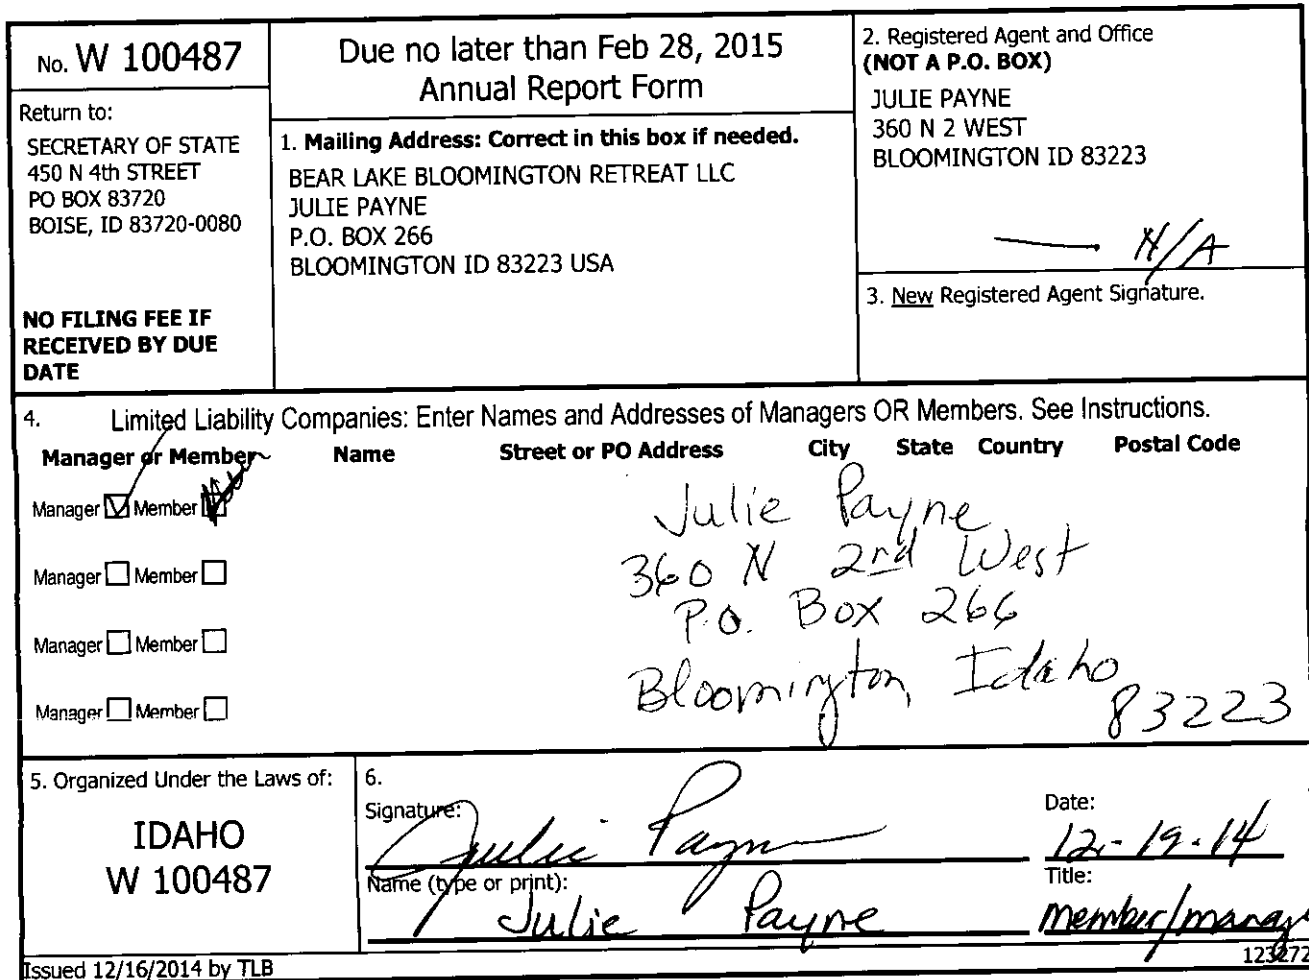 No. W 100487
Return to:
SECRETARY OF STATE
450 N 4th STREET
PO BOX 83720
BOISE, ID 83720-0080
NO FILING FEE IF
RECEIVED BY DUE
DATE
Due no later than Feb 28, 2015
Annual Report Form
1. Mailing Address: Correct in this box if needed.
BEAR LAKE BLOOMINGTON RETREAT LLC
JULIE PAYNE
P.O. BOX 266
BLOOMINGTON ID 83223 USA
2. Registered Agent and Office
(NOT A P.O. BOX)
JULIE PAYNE
360 N 2 WEST
BLOOMINGTON ID 83223
N/A
3. New Registered Agent Signature.
4. Limited Liability Companies: Enter Names and Addresses of Managers OR Members. See Instructions.
Manager or Member Name Street or PO Address City State Country Postal Code
Manager Member
Manager Member
Manager Member
Manager Member
Julie Payne
360 N 2nd West
P.O. Box 266
Bloomington, Idaho
83223
5. Organized Under the Laws of:
IDAHO
W 100487
6.
Signature: Julie Payne
Date:
12-19-14
Name (type or print):
Julie Payne
Title:
member/manag
Issued 12/16/2014 by TLB
123272